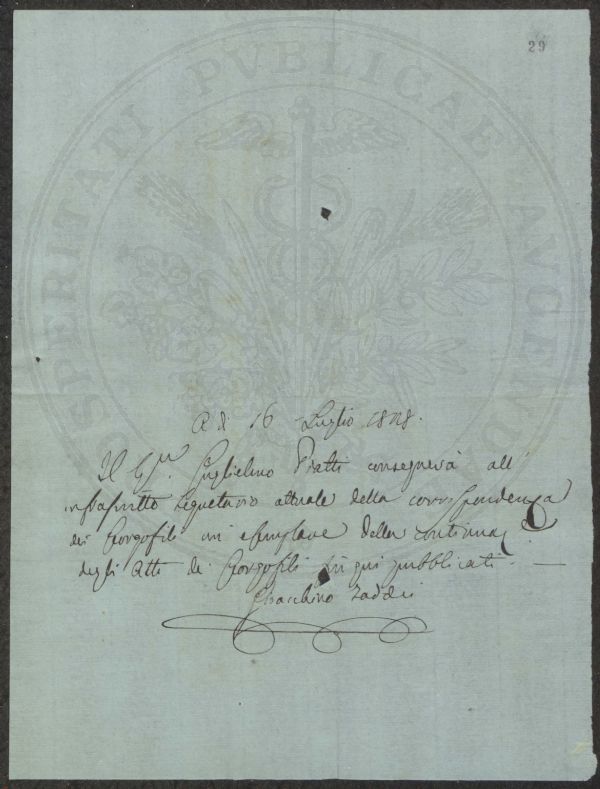 29
PROSPERITATI PUBLICAE AUGENDAE
A dì 16 Luglio 1828.
Il Sig.r Guglielmo Piatti consegnerà all'
infrascritto Segretario attuale della corrispondenza
dei Georgofili un esemplare della continuaz.e
degli Atti de Georgofili fin qui pubblicati. —
Gioacchino Taddei